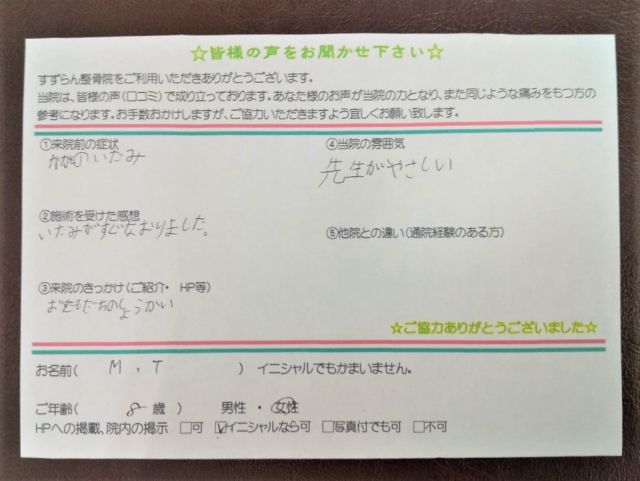 ☆皆様の声をお聞かせ下さい☆
すずらん整骨院をご利用いただきありがとうございます。
当院は、皆様の声(口コミ)で成り立っております。あなた様のお声が当院の力となり、また同じような痛みをもつ方の
参考になります。お手数おかけしますが、ご協力いただきますよう宜しくお願い致します。
①来院前の症状
かかとのいたみ
②施術を受けた感想
いたみがすぐなおりました。
③来院のきっかけ(ご紹介・ HP等)
おともだちのしょうかい
④当院の雰囲気
先生がやさしい
⑤他院との違い(通院経験のある方)
☆ご協力ありがとうございました☆
お名前( M . T ) イニシャルでもかまいません。
ご年齢( 8 歳 ) 男性 ・ 女性
HPへの掲載、院内の掲示 □可 ☑イニシャルなら可 □写真付でも可 □不可